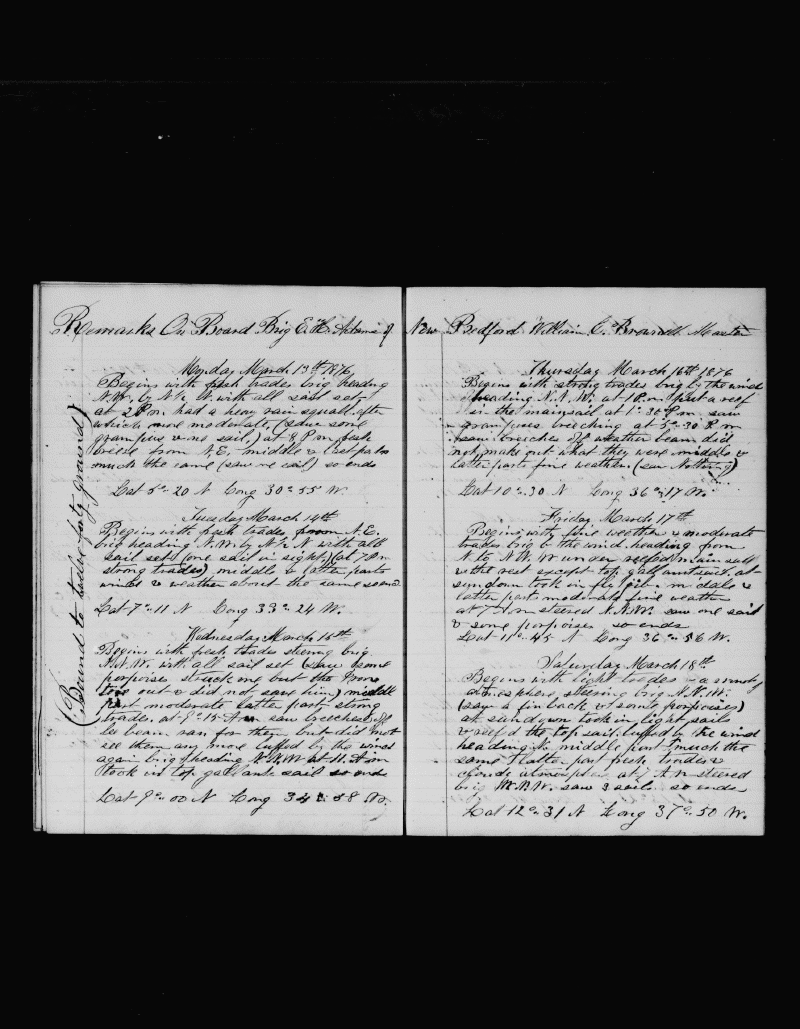 Remarks On Board Brig E. H. Adams of New Bedford William C. Master
(Bound to twelve forty ground)
Monday March 13th 1876
Begins with fresh trades brig heading
N.W. by N. with all sail set
at 2 P.m. had a heavy rain squall after
which more moderate, (saw some
grampus & one sail,) at 8 P m fresh
breeze from N.E. middle & last parts
much the same (saw one sail) so ends
Lat 5° 20 N Long 30° 55 W.
Tuesday March 14th
Begins with fresh trades from N.E.
brig heading N.W. by N. with all
sail sett (one sail in sight) (at 7 P m
strong trades) middle & latter parts
wind & weather about the same so ends
Lat 7° 11 N Long 33° 24 W.
Wednesday March 15th
Begins with fresh trades steering brig
N.N.W. with all sail set (saw some
porpoises struck one but the Iron
tore out & did not save him) middle
part moderate latter part strong
trades at 9° 15 A m saw breeches off
lee beam ran for them but did not
see them any more luffed by the wind
again brig heading N.N.W at 11. A m
took in top gallant sail so ends
Lat 9° 00 N Long 34 58 W.
Thursday March 16th 1876
Begins with strong trades brig by the wind
heading N.N.W. at 1 P.m. put a reef
in the mainsail at 1° 30 P m saw
grampuses breeching at 5° 30 P m
saw breeches off weather beam did
not make out what they were middle &
latter parts fine weather. (saw Nothing)
Lat 10° 30 N Long 36° 17 W.
Friday March 17th
Begins with fine weather & moderate
trades brig by the wind heading from
N. to N.N.W under reefed main sail
& the rest except top gallantsail. at
sundown took in fly jib. middle &
latter part moderate fine weather
at 7 A m steered N.N.W. saw one sail
& some porpoises so ends
Lat 11° 45 N Long 36° 56 W.
Saturday March 18th
Begins with light trades & a smoky
atmosphere, steering brig N.N.W.
(saw a finback & some porpoises)
at sundown took in light sails
& reef'd the top sail. luffed by the wind
heading N. middle part much the
same latter part fresh trades &
cloudy atmosphere at 7 A m steered
brig W.N.W. saw 2 sails. so ends
Lat 12° 31 N Long 37° 50 W.